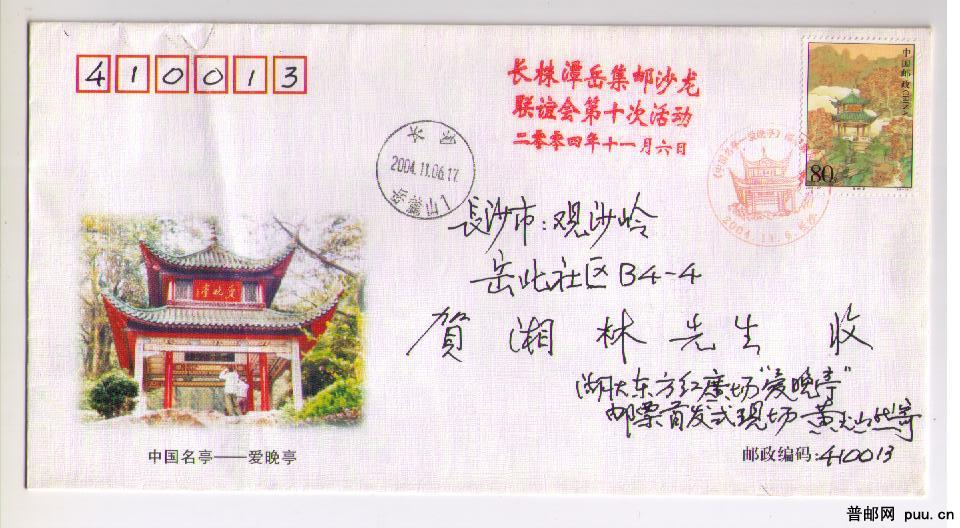 410013
长株潭岳集邮沙龙
联谊会第十次活动
二零零四年十一月六日
中国邮政 CHINA
80
长沙
2004.11.06.17
岳麓山1
2004.11.6.长沙
长沙市:观沙岭
岳北社区B4-4
賀湘林先生 收
湖大东方红廣场"爱晚亭"
邮票首发式现场
爱晚亭
中国名亭——爱晚亭
邮政编码:410013
普邮网 puu.cn